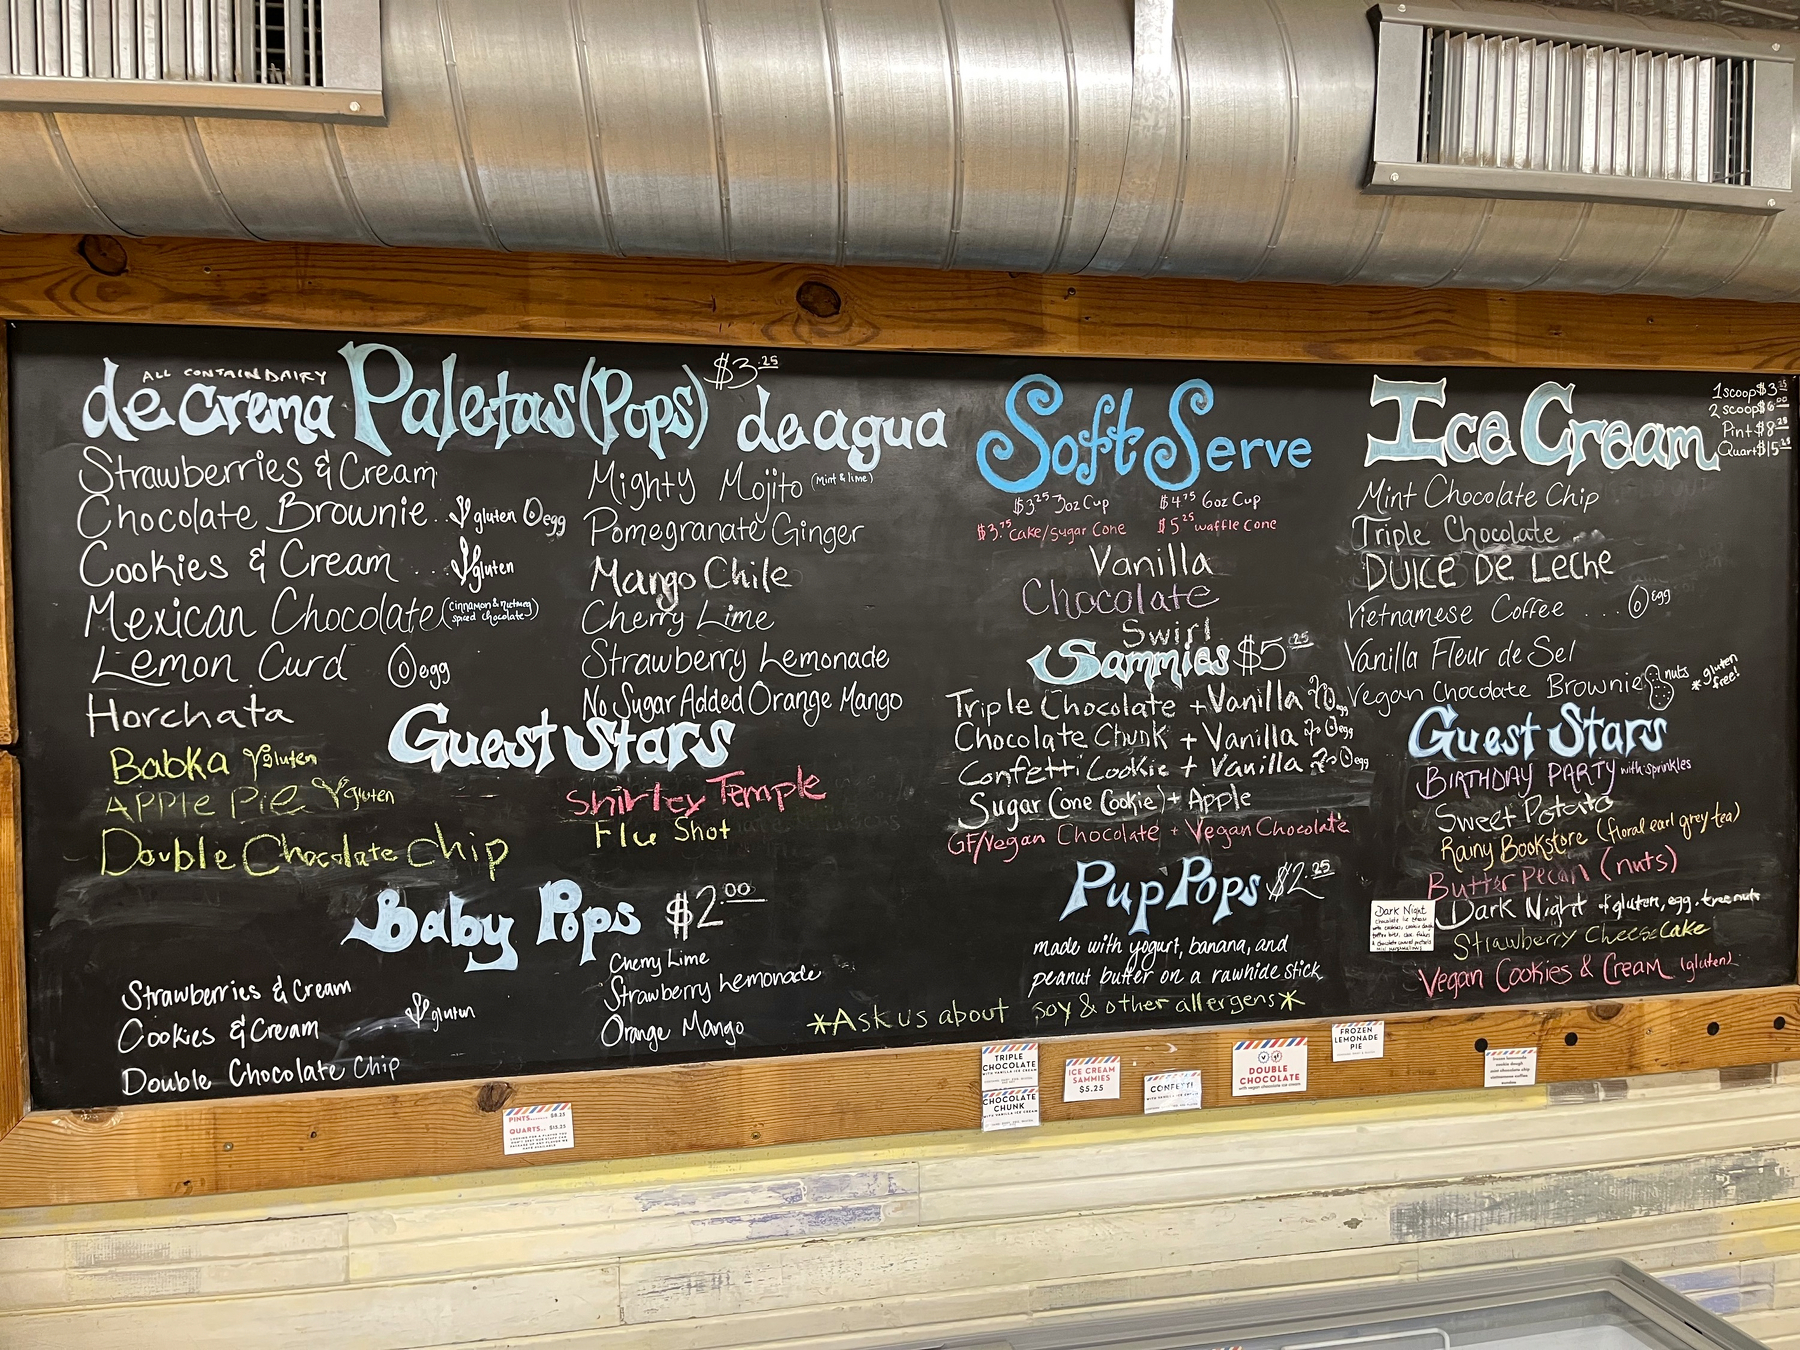 ALL CONTAIN DAIRY
de Crema
Paletas (Pops) $3.25
de agua
Strawberries & Cream
Chocolate Brownie.. gluten egg
Cookies & Cream ... gluten
Mexican Chocolate (cinnamon & nutmeg
spiced chocolate)
Lemon Curd egg
Horchata
Mighty Mojito (Mint & lime)
Pomegranate Ginger
Mango Chile
Cherry Lime
Strawberry Lemonade
No Sugar Added Orange Mango
Guest Stars
Babka gluten
APPLE PiE gluten
Double Chocolate Chip
Shirley Temple
Flu Shot
Baby Pops $2.00
Strawberries & Cream
Cookies & Cream gluten
Double Chocolate Chip
Cherry Lime
Strawberry Lemonade
Orange Mango
Soft Serve
$3.25 3oz Cup $4.75 6oz Cup
$3.75 Cake/Sugar Cone $5.25 waffle cone
Vanilla
Chocolate
Swirl
Sammies $5.25
Triple Chocolate + Vanilla egg
Chocolate Chunk + Vanilla egg
Confetti Cookie + Vanilla egg
Sugar Cone Cookie) + Apple
GF/Vegan Chocolate + Vegan Chocolate
Pup Pops $2.25
made with yogurt, banana, and
peanut butter on a rawhide stick
*Ask us about soy & other allergens*
Ice Cream
1 scoop $3.25
2 scoop $6.00
Pint $8.25
Quart $15.25
Mint Chocolate Chip
Triple Chocolate
DULCE DE LECHE
Vietnamese Coffee ... egg
Vanilla Fleur de Sel
Vegan Chocolate Brownie nuts *gluten
free!
Guest Stars
BIRTHDAY PARTY with sprinkles
Sweet Potato
Rainy Bookstore (floral earl grey tea)
Butter Pecan (nuts)
Dark Night gluten, egg, tree nuts
Strawberry Cheesecake
Vegan Cookies & Cream (gluten)
Dark Night
PINTS........ $8.25
QUARTS.. $15.25
TRIPLE
CHOCOLATE
WITH VANILLA ICE CREAM
CHOCOLATE
CHUNK
WITH VANILLA ICE CREAM
ICE CREAM
SAMMIES
$5.25
CONFETTI
DOUBLE
CHOCOLATE
with vegan chocolate ice cream
FROZEN
LEMONADE
PIE